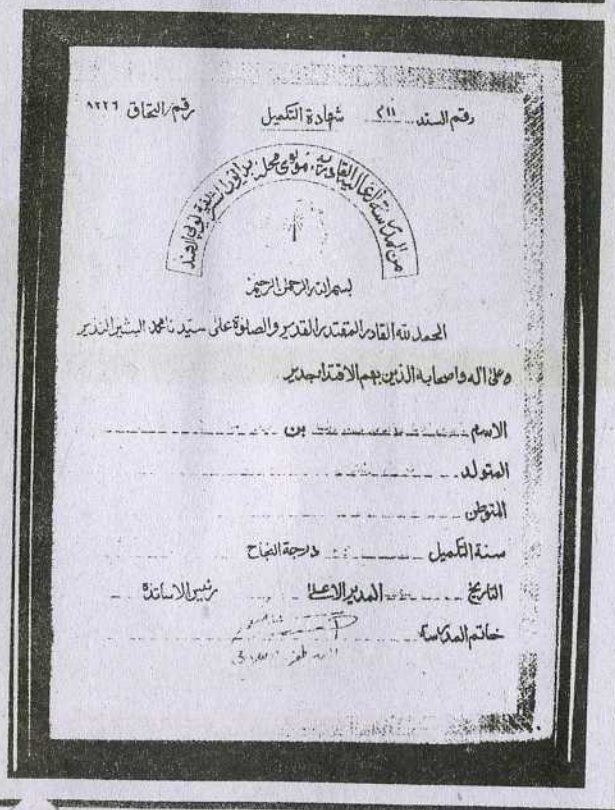 رقم السند ٢١١ شهادة التكميل رقم التحاق ٩٢٢٦
من المدرسة العالية القادرية مولوى محله بدايون الهند
بسم الله الرحمن الرحيم
الحمد لله القادر المقتدر القدير والصلوة على سيدنا محمد البشير النذير
وعلى اله واصحابه الذين بهم الاقتداء جدير
الاسم بن
المتولد
المتوطن
سنة التكميل درجة النجاح
التاريخ المدير الاعلى رئيس الاساتذة
خاتم المدرسة